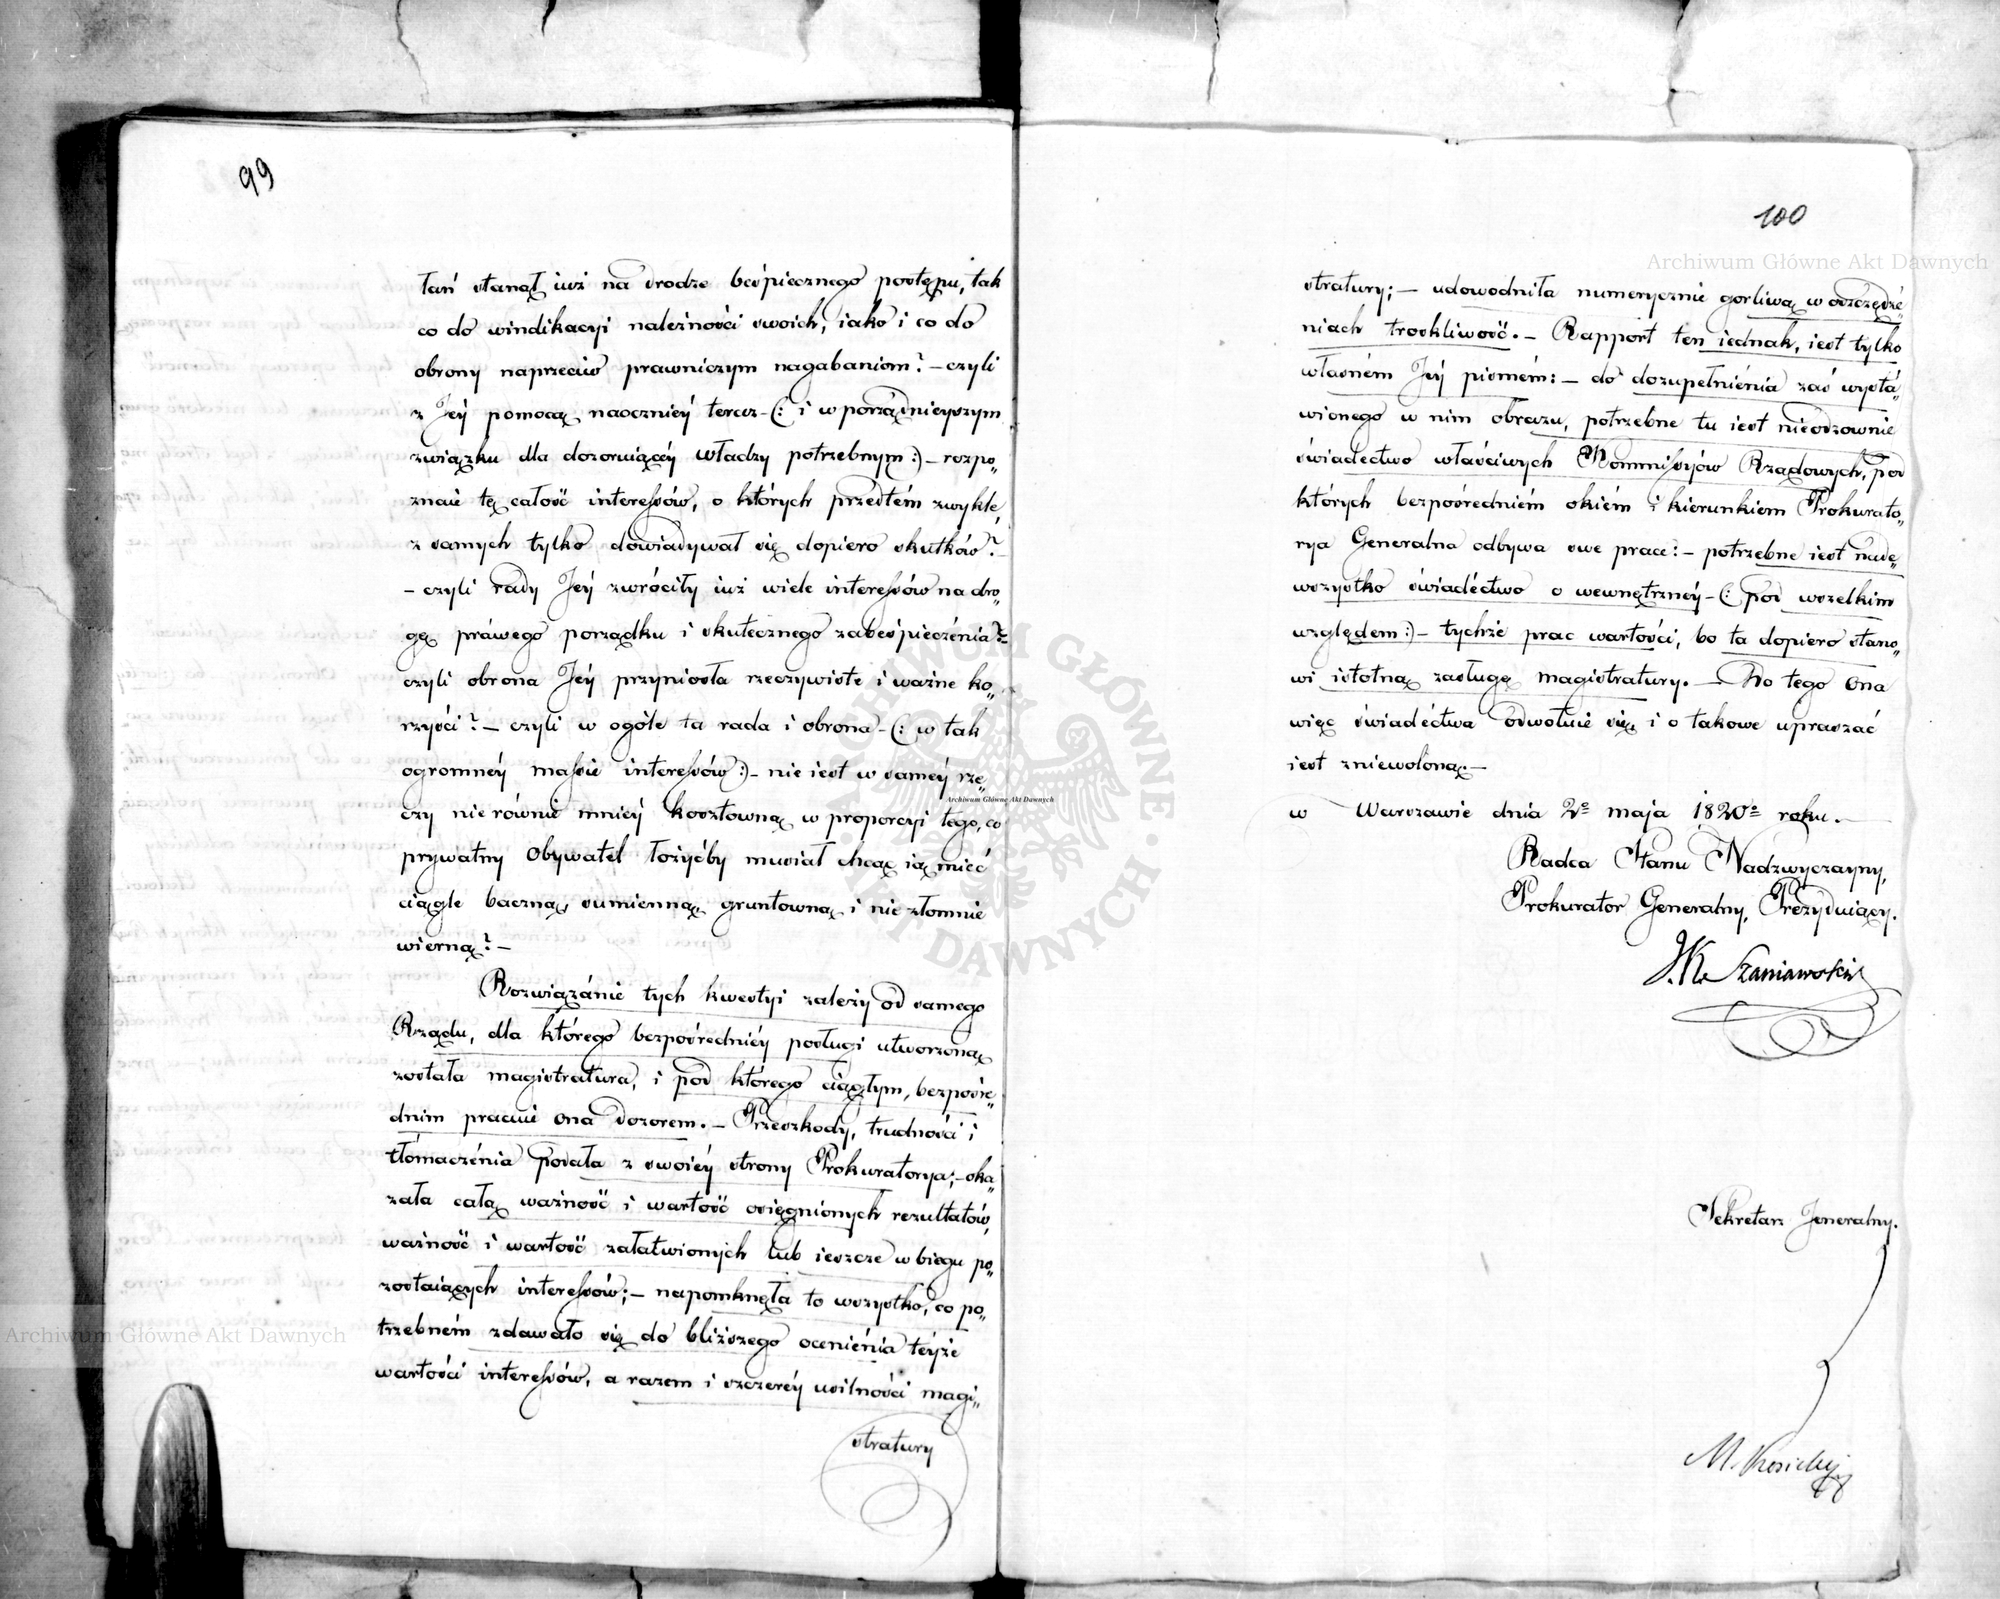 99
łań stanął iuż na drodze beśpiecznego postępu, tak
co do windikacyi należności swoich, iako i co do
obrony naprzeciw prawniczym nagabaniom? – czyli
z Jéy pomocą naoczniéy teraz –(: i w porządnieyszym
związku dla dozoruiącéy Władzy potrzebnym :)– rozpo„
znaie tę całość interessów, o których przedtém zwykle,
z samych tylko dowiadywał się dopiero skutków? –
– czyli rady Jéy zwróciły iuż wiele interessów na dro„
gę práwego porządku i skutecznego zabeśpieczénia? –
czyli obrona Jéy przyniosła rzeczywiste i ważne ko„
rzyści? – czyli w ogóle ta rada i obrona –(: w tak
ogromnéy massie interessów :)– nie iest w saméy rze„
czy nierównie mniéy kosztowną w proporcyi tego, co
prywatny Obywatel łożyćby musiał chcąc ią mieć
ciągle baczną, sumienną, gruntowną i niezłomnie
wierną? –
Rozwiązánie tych kwestyi zależy od samego
Rządu, dla którego bezpośredniéy posługi utworzoną
została magistratura, i pod którego ciągłym, bezpośre„
dnim pracuie ona dozorem. – Przeszkody, trudności i
tłómaczénia podała z swoiéy strony Prokuratorya; – oka„
zała całą ważność i wartość osięgnionych rezultatów,
ważność i wartość załatwionych lub ieszcze w biegu po„
zostaiących interessów; – napomknęła to wszystko, co po„
trzebném zdawało się do bliższego oceniénia téyże
wartości interessów, a razem i szczeréy usilności magi„
stratury
100
stratury; – udowodniła numerycznie gorliwą w oszczędzé„
niach troskliwość. – Rapport ten iednak, iest tylko
własném Jéy pismém: – do dozupełniénia zaś wystá„
wionego w nim obrazu, potrzebne tu iest nieodzownie
świadectwo właściwych Kommissyów Rządowych, pod
których bezpośredniém okiém i kierunkiem Prokurato„
rya Generalna odbywa swe prace: – potrzebne iest nade„
wszystko świadéctwo o wewnętrznéy –(: pod wszelkim
względem :)– tychże prac wartości, bo ta dopiero stano„
wi istotną zasługę magistratury. – Do tego Ona
więc świadéctwa odwołuie się, i o takowe upraszać
iest zniewoloną. –
w Warszawie dnia 2º maja 1820º roku. –
Radca Stanu Nadzwyczayny,
Prokurator Generalny, Prezyduiący.
J. K. Szaniawski
Sekretarz Jeneralny.
M. Kosicki
Archiwum Główne Akt Dawnych
Archiwum Główne Akt Dawnych
Archiwum Główne Akt Dawnych
ARCHIWUM GŁÓWNE AKT DAWNYCH